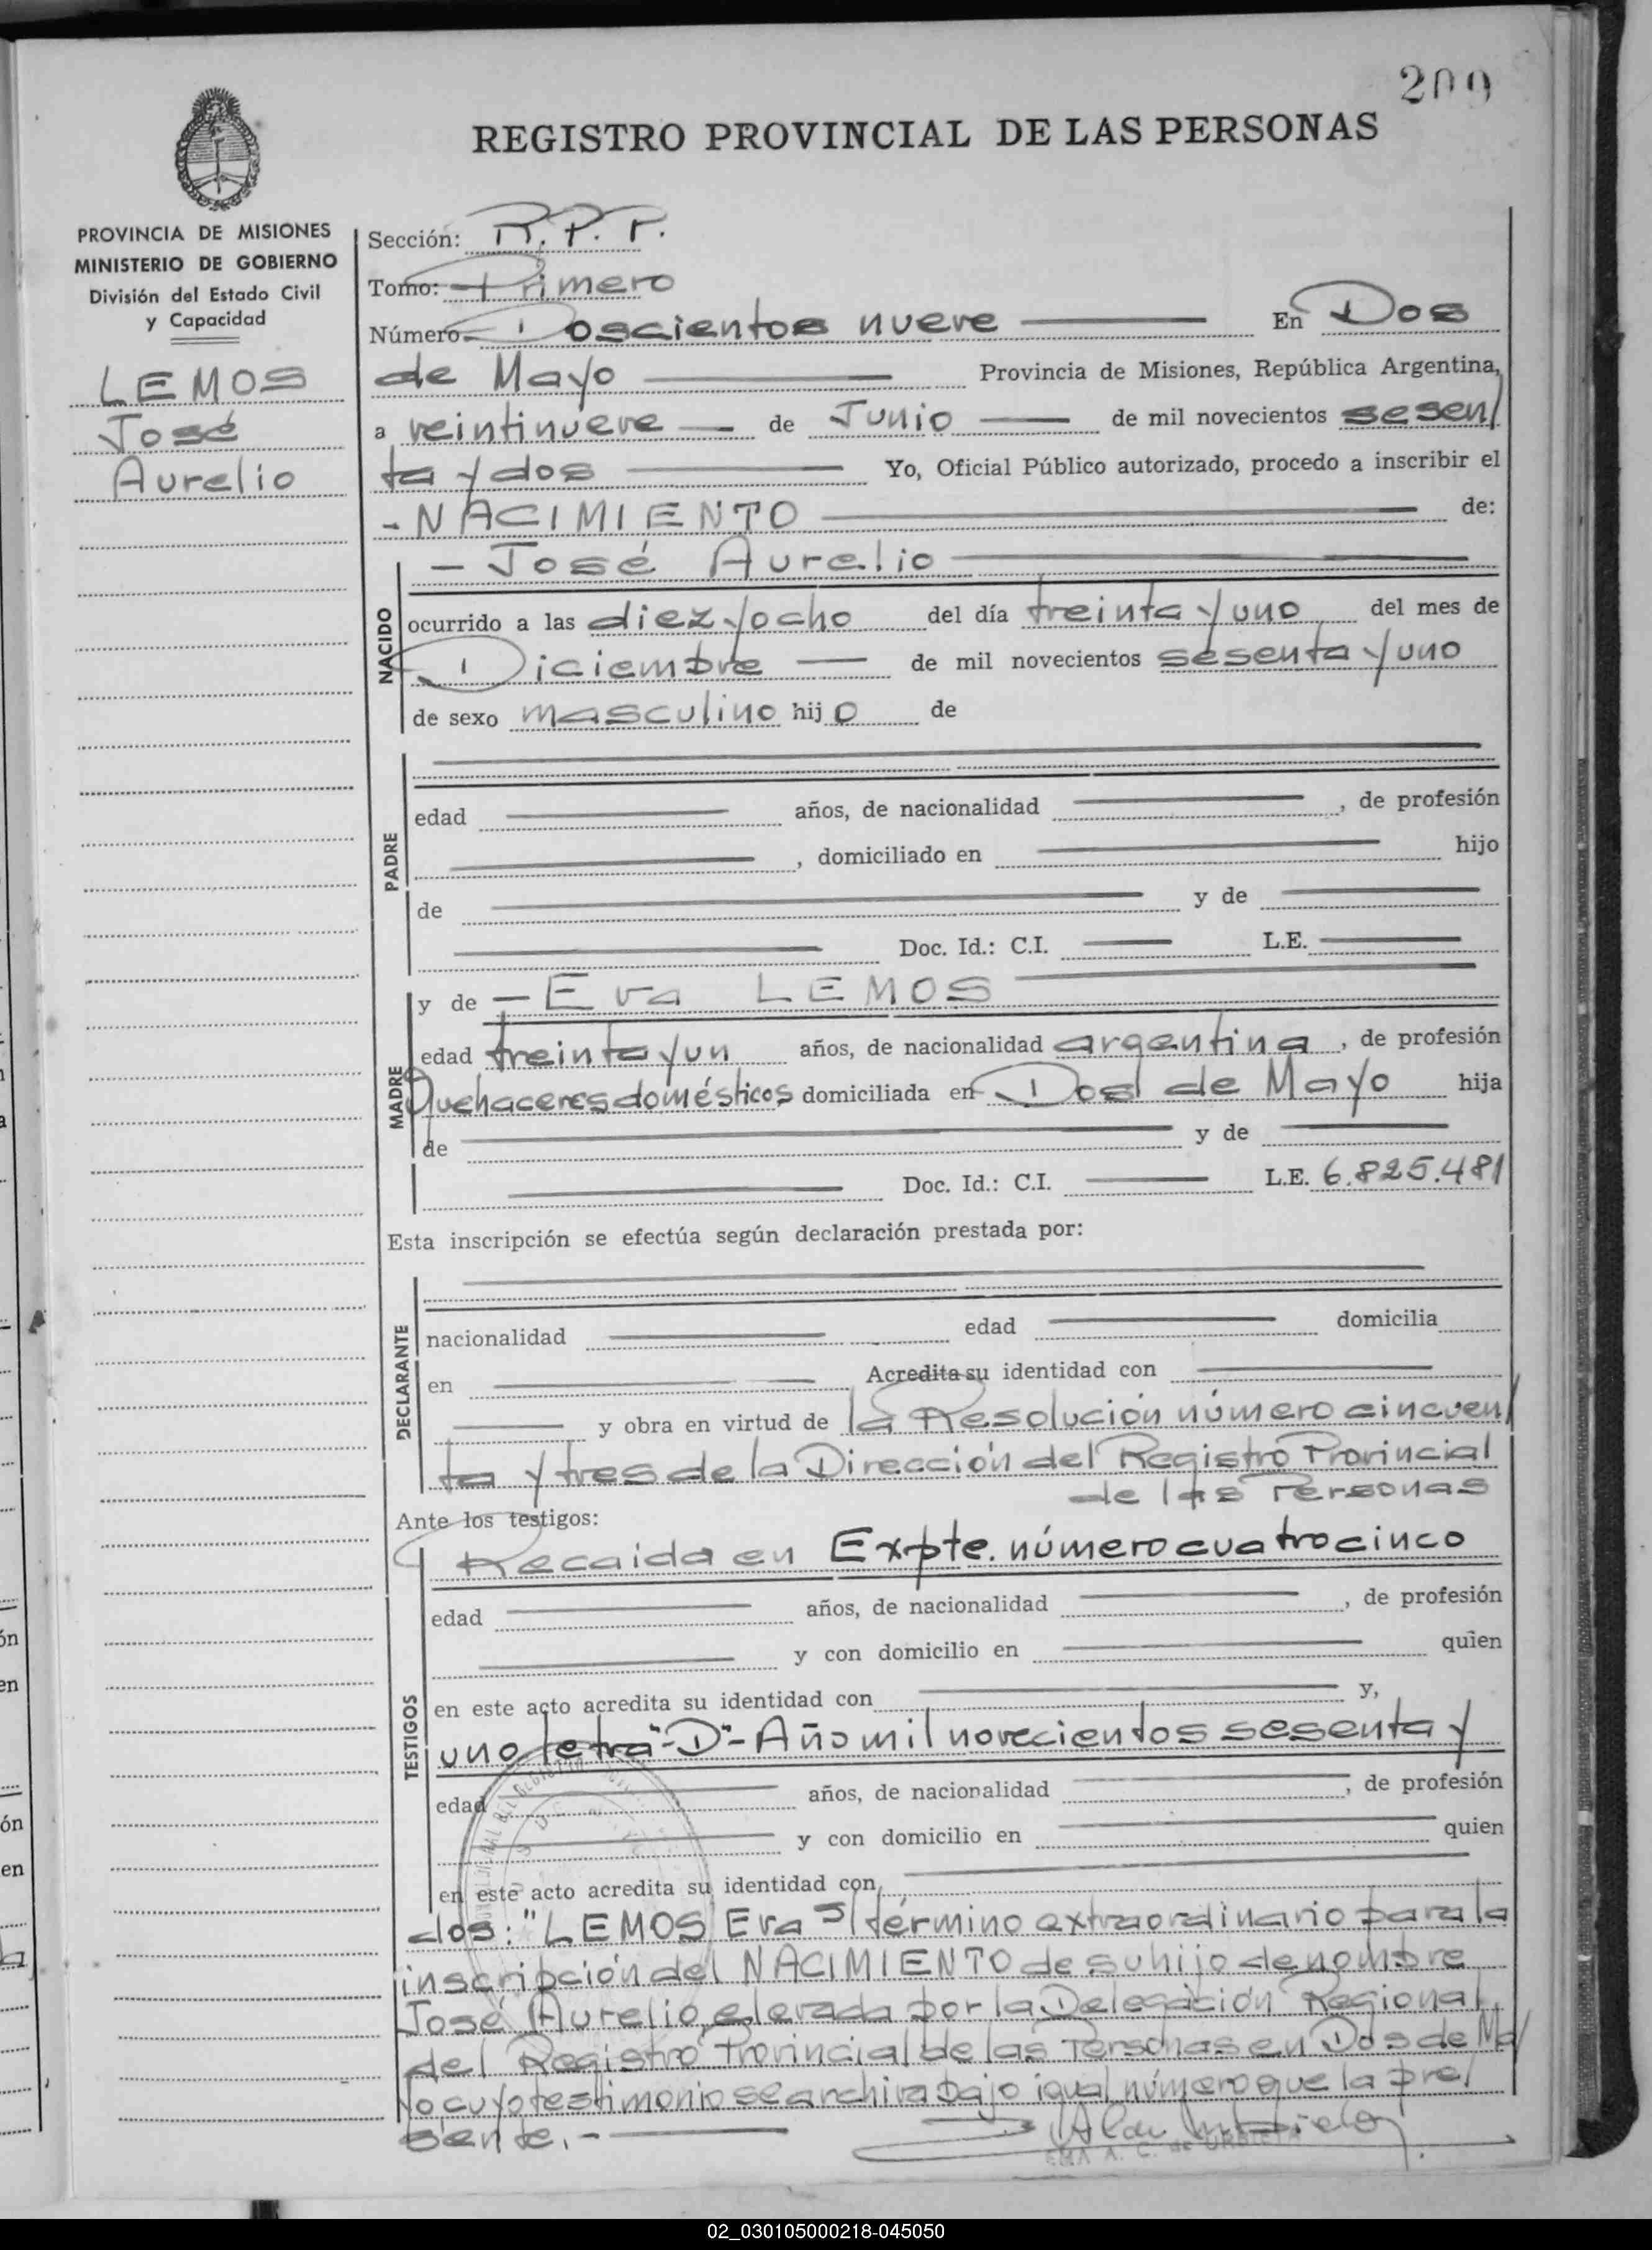 209
REGISTRO PROVINCIAL DE LAS PERSONAS
PROVINCIA DE MISIONES
MINISTERIO DE GOBIERNO
División del Estado Civil
y Capacidad
LEMOS
José
Aurelio
Sección: R.P.P.
Tomo: Primero
Número Doscientos nueve En Dos
de Mayo Provincia de Misiones, República Argentina,
a veintinueve de Junio de mil novecientos sesen/
ta y dos Yo, Oficial Público autorizado, procedo a inscribir el
- NACIMIENTO de:
NACIDO
- José Aurelio
ocurrido a las diez y ocho del día treinta y uno del mes de
Diciembre de mil novecientos sesenta y uno
de sexo masculino hijo de
PADRE
edad años, de nacionalidad , de profesión
, domiciliado en hijo
de y de
Doc. Id.: C.I. L.E.
MADRE
y de - Eva LEMOS
edad treinta y un años, de nacionalidad argentina, de profesión
Quehaceres domésticos domiciliada en Dos de Mayo hija
de y de
Doc. Id.: C.I. L.E. 6.825.481
Esta inscripción se efectúa según declaración prestada por:
DECLARANTE
nacionalidad edad domicilia
en Acredita su identidad con
y obra en virtud de la Resolución número cincuen/
ta y tres de la Dirección del Registro Provincial
de las Personas
Ante los testigos:
TESTIGOS
Recaida en Expte. número cuatro cinco
edad años, de nacionalidad , de profesión
y con domicilio en quien
en este acto acredita su identidad con y,
uno letra "D" - Año mil novecientos sesenta y
edad años, de nacionalidad , de profesión
y con domicilio en quien
en este acto acredita su identidad con
dos: "LEMOS Eva s/ término extraordinario para la
inscripción del NACIMIENTO de su hijo de nombre
José Aurelio, elevada por la Delegación Regional
del Registro Provincial de las Personas en Dos de Ma/
yo cuyo testimonio se archiva bajo igual número que la pre/
sente.-
A. C. de URBIETA
02_030105000218-045050